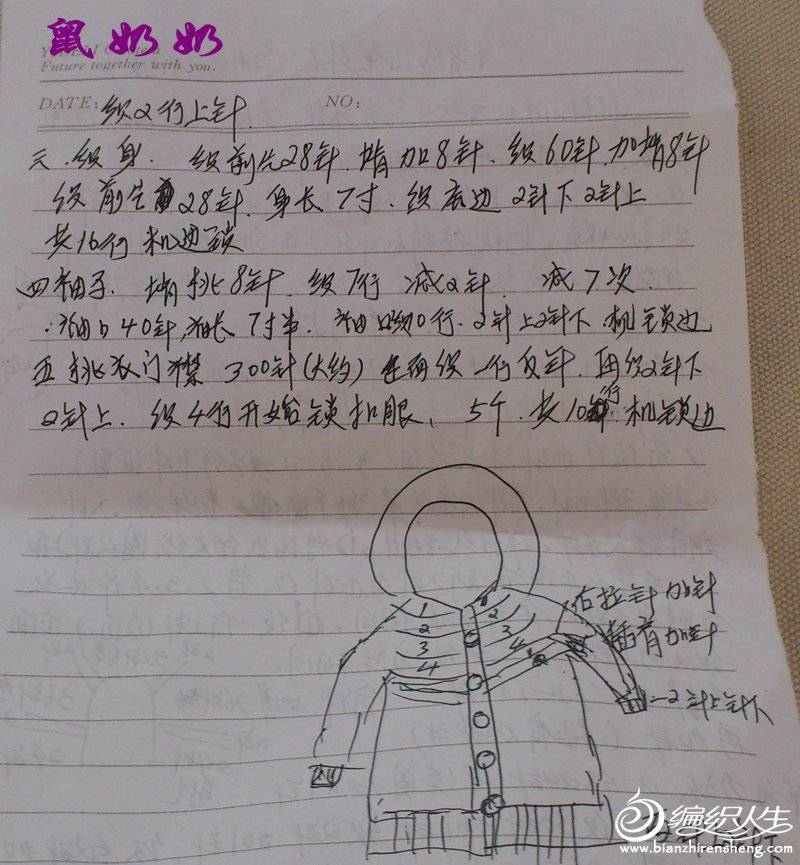 鼠奶奶
Future together with you.
DATE: 织2行上针 NO:
三.织身. 织前片28针.掯加8针.织60针.加掯8针
织前片28针.身长7寸.织底边2针下2针上
共16行机边锁
四袖子.掯挑8针.织7行减2针.减7次.
袖口40针,袖长7寸半.袖口10行.2针上2针下.机锁边
五挑衣门襟300针(大约)再织一行反针.再织2针下
2针上.织4行开始锁扣眼,5个.共10行.机锁边
1 2
2 3
3 4
4
右拉针加针
掯有加针
2针上针下
编织人生
www.bianzhirensheng.com